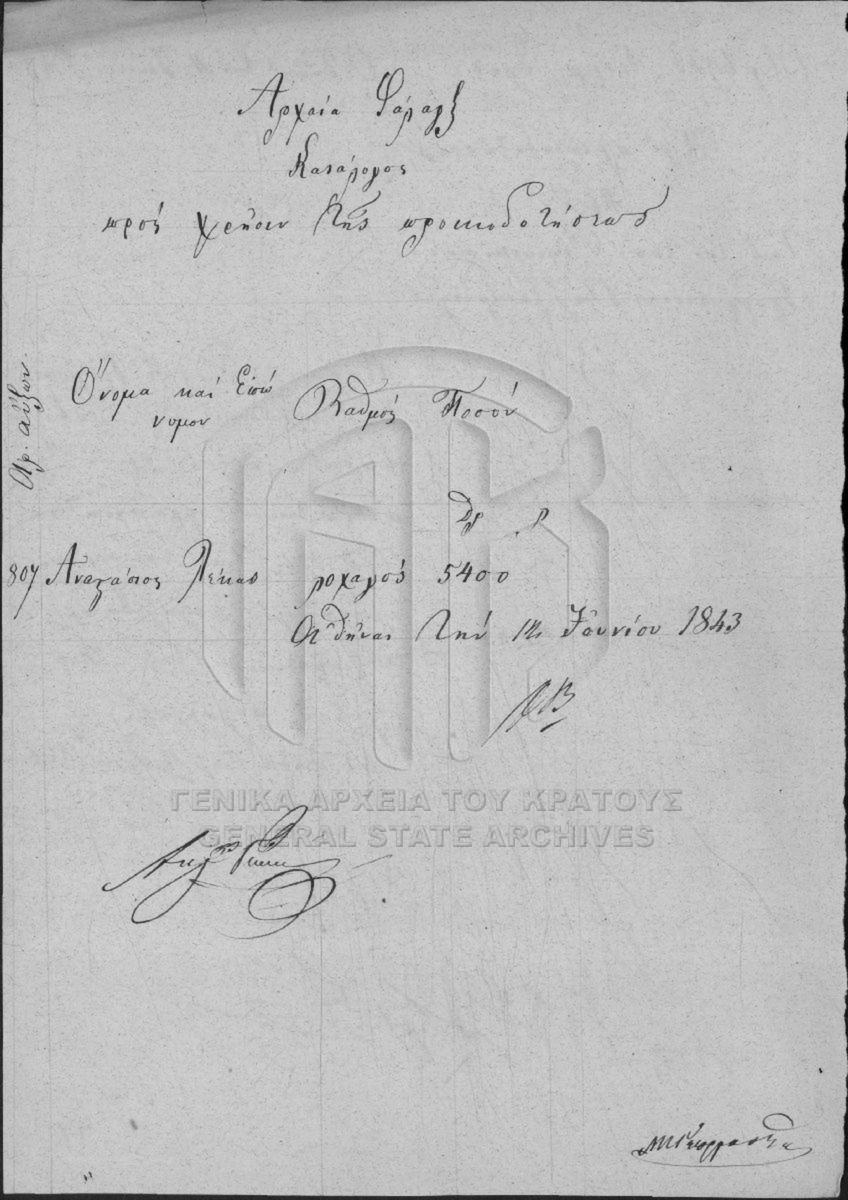 Ἀρχαία Φάλαγξ
Κατάλογος
πρός χρῆσιν τῆς προικοδοτήσεως
Ἀρ. αὔξων.
Ὄνομα καί Ἐπώ
νυμον
Βαθμός Ποσόν
Δρ
807 Ἀναστάσιος Λέκας λοχαγός 5400
Ἀθῆναι τήν Ἰουνίου 1843
ΓΕΝΙΚΑ ΑΡΧΕΙΑ ΤΟΥ ΚΡΑΤΟΥΣ
GENERAL STATE ARCHIVES